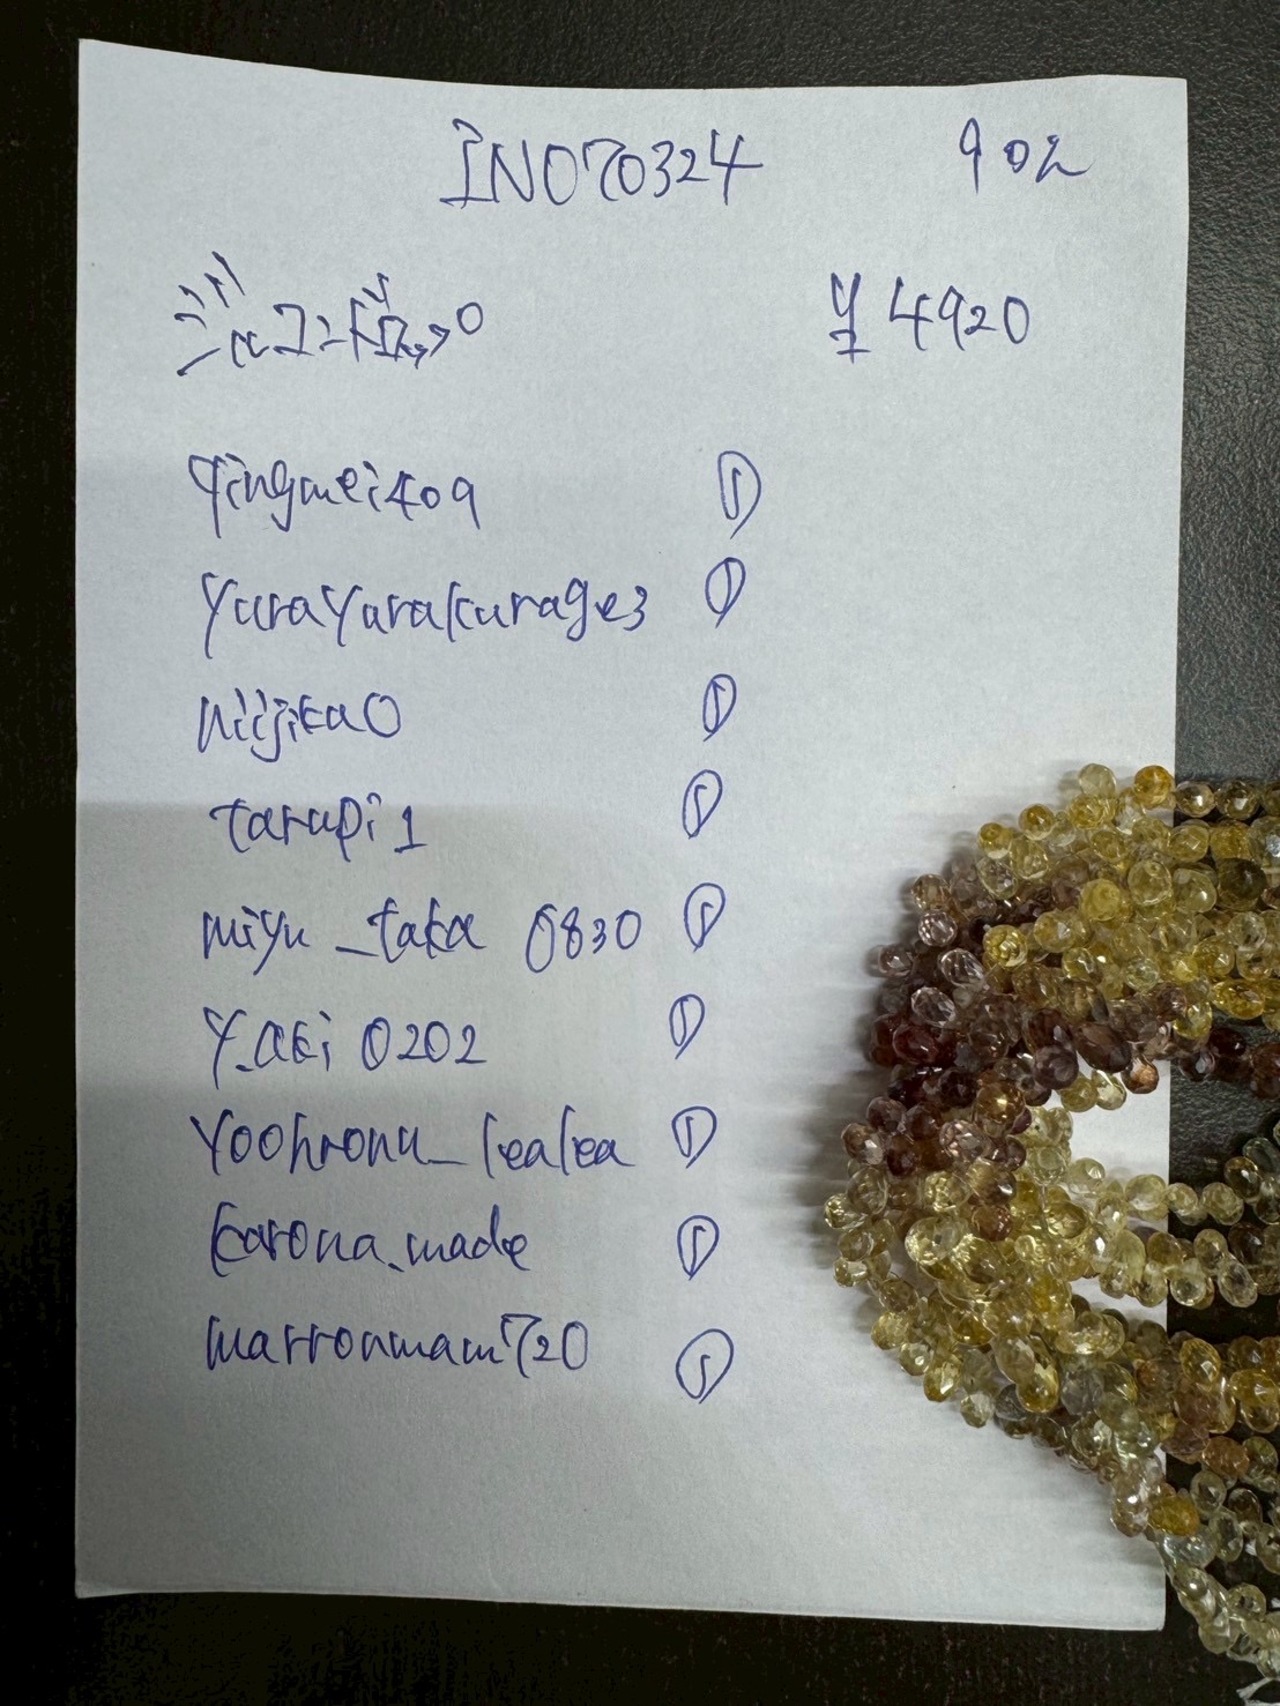 INO70324 902
¥4920
qingmei409 ①
yurayurakurage3 ①
niijika0 ①
tarupi1 ①
miyu_taka 0830 ①
y.aki 0202 ①
①
karona.made ①
marronmam720 ①